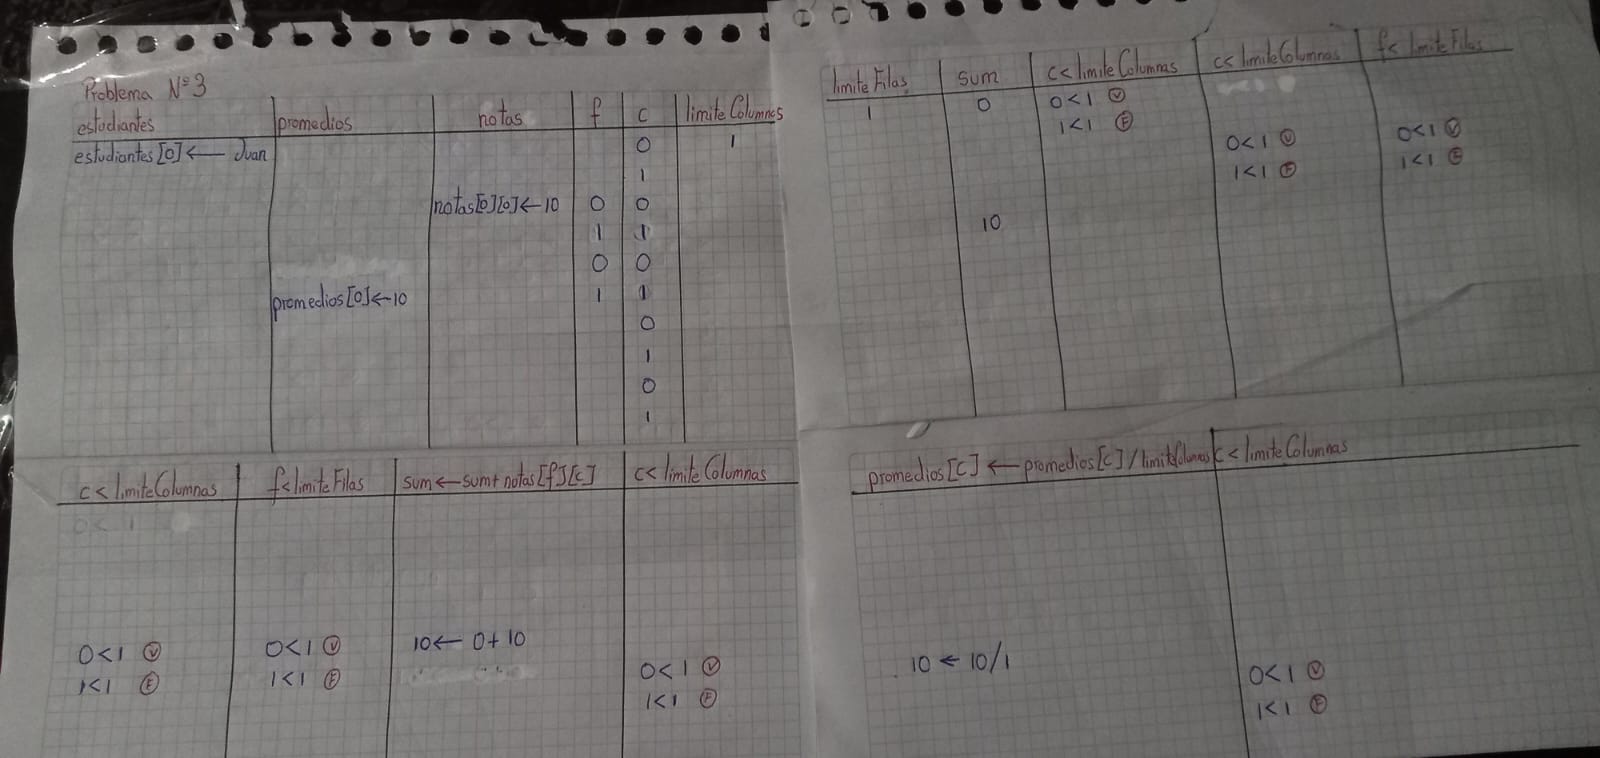 Problema Nº 3
estudiantes promedios notas f c limite Columnas
estudiantes[0] ← Juan 0 1
1
notas[0][0] ← 10 0 0
1 1
0 0
promedios[0] ← 10 1 1
0
1
0
1
limite Filas sum c < limite Columnas c < limite Columnas f < limite Filas
1 0 0 < 1 V
1 < 1 F
0 < 1 V 0 < 1 V
1 < 1 F 1 < 1 F
10
c < limite Columnas f < limite Filas sum ← sum + notas[f][c] c < limite Columnas
0 < 1
0 < 1 V 0 < 1 V 10 ← 0 + 10
1 < 1 F 1 < 1 F
0 < 1 V
1 < 1 F
promedios[c] ← promedios[c] / limite Columnas c < limite Columnas
10 ← 10/1
0 < 1 V
1 < 1 F